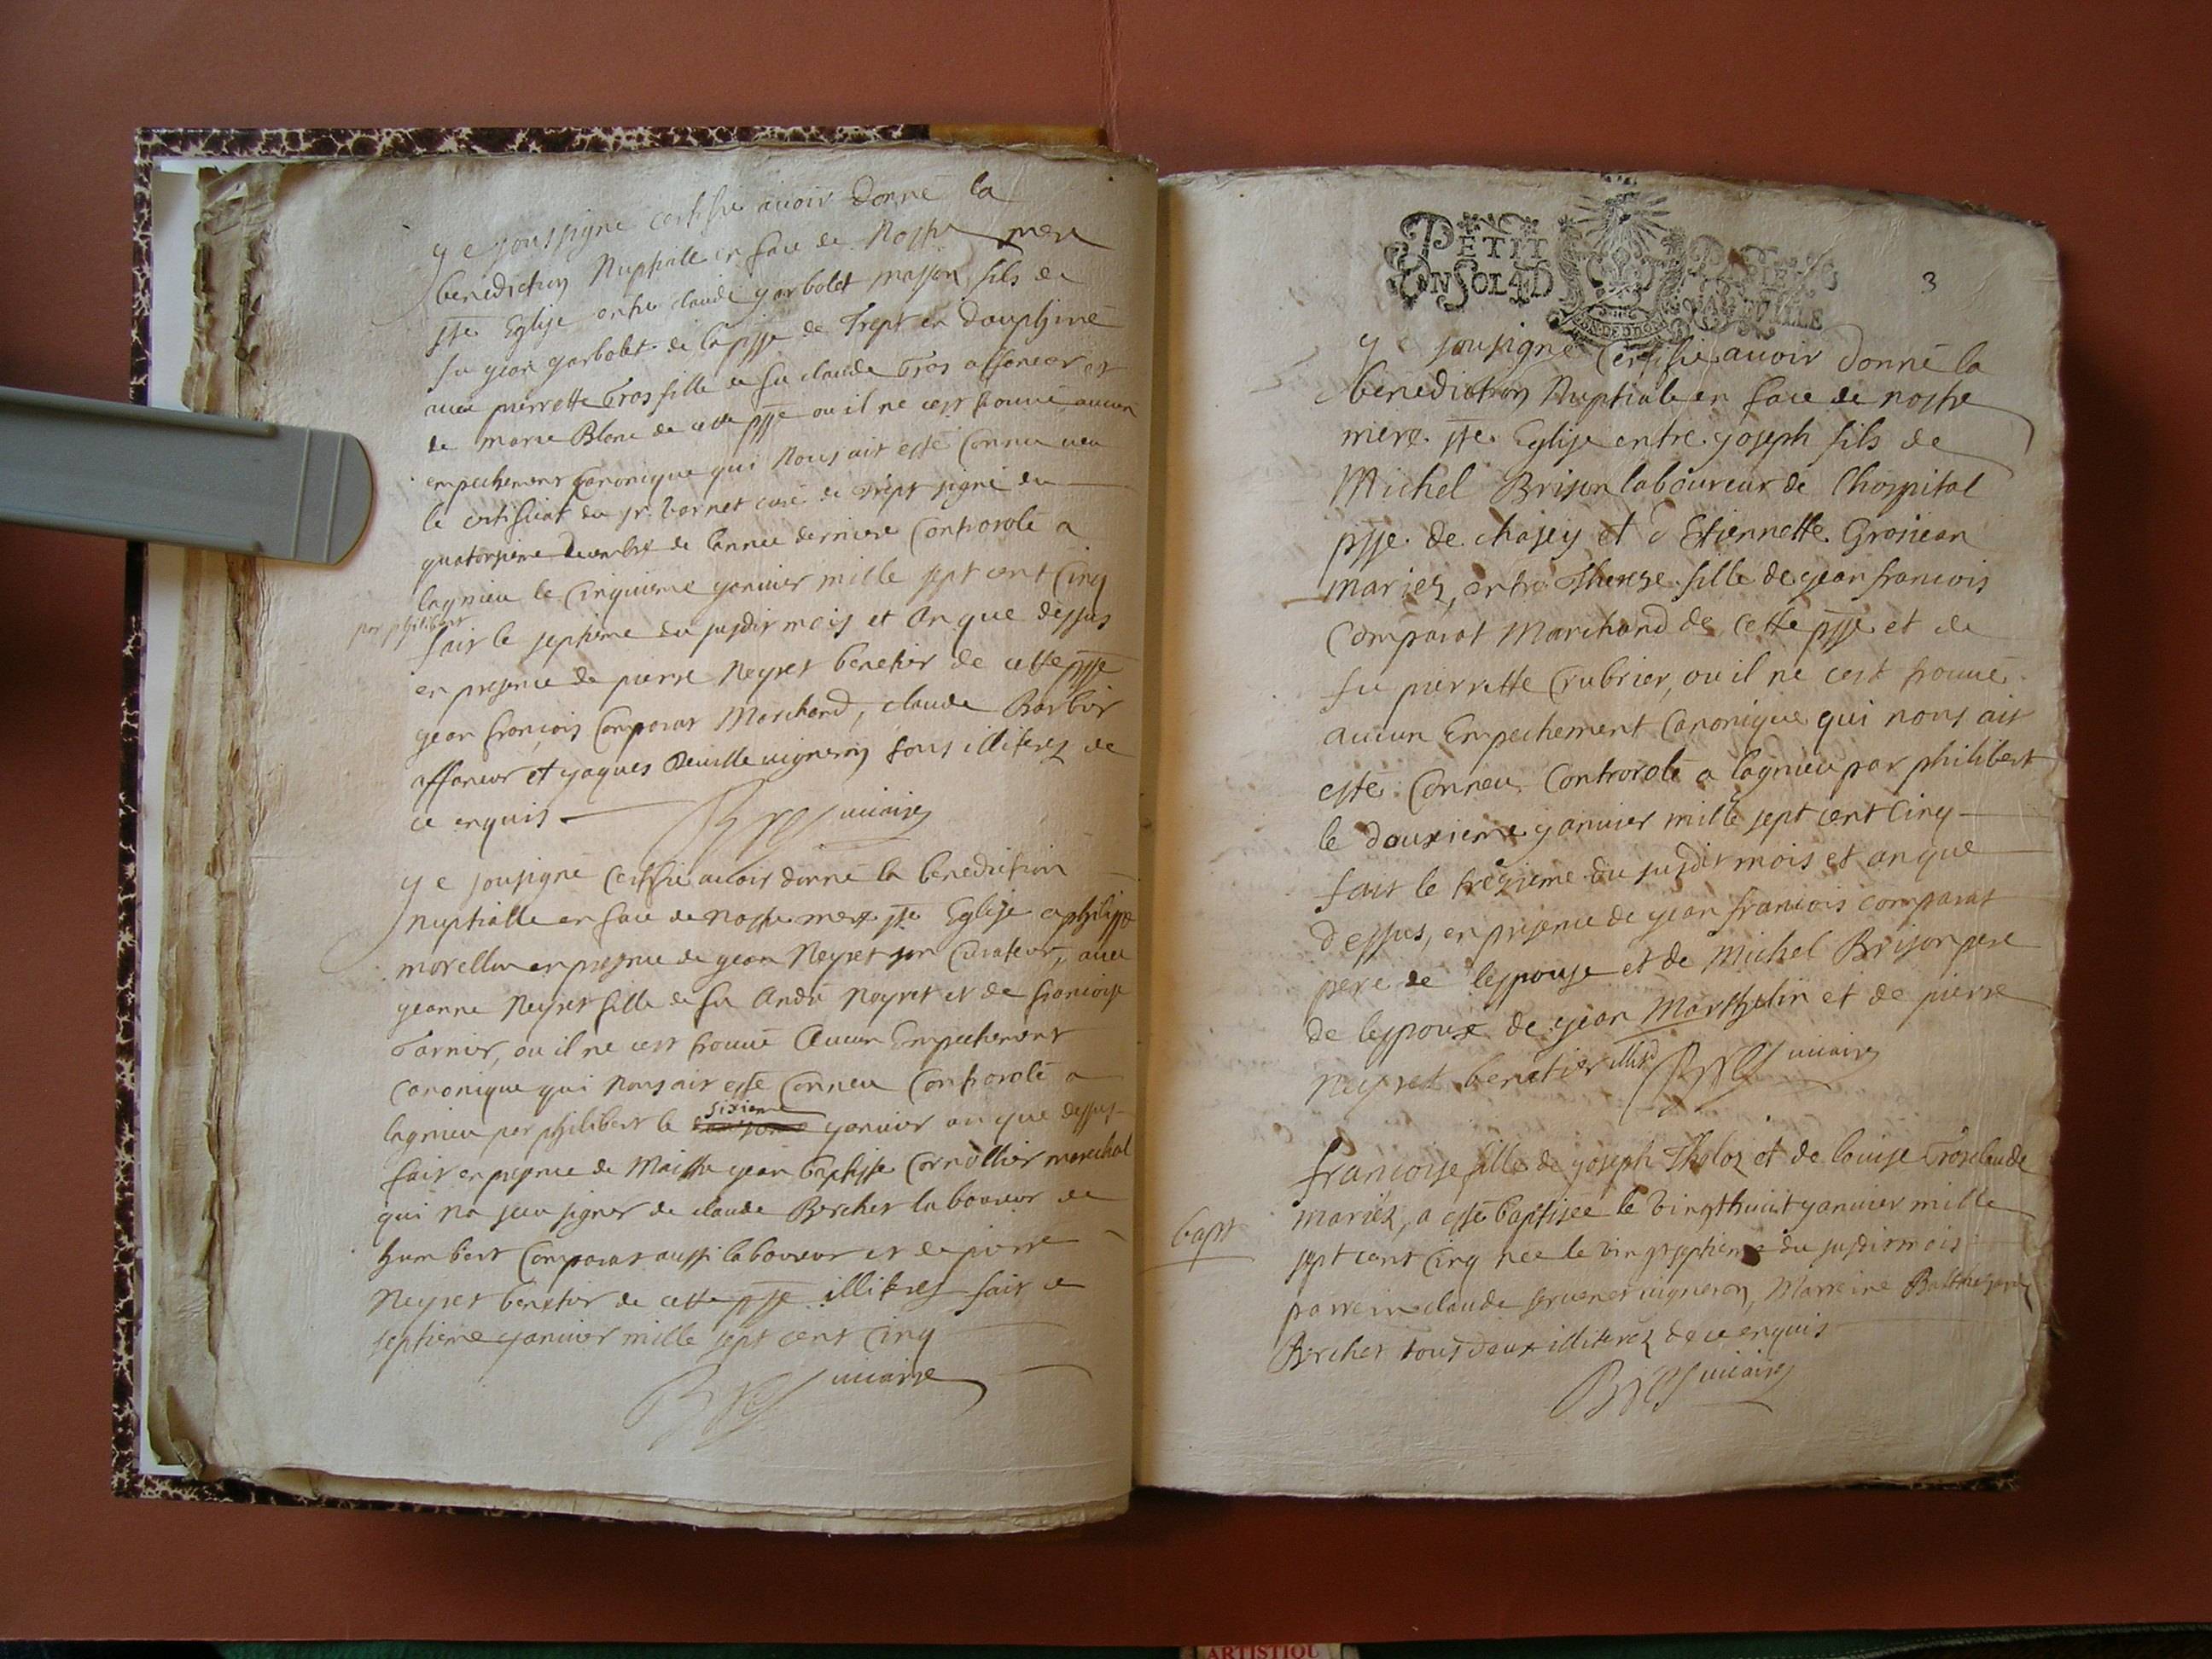 ye soussigne certifie avoir donné la
benediction Nuptialle en face de Nostre mere
ste Eglise entre claude garbolet masson fils de
fu gean garbolet de la psse de Trept en dauphiné
avec pierrette Gros fille de fu claude Gros affaneur et
de marie Blanc de cette psse ou il ne cest trouvé aucun
empechement canonique qui Nous ait esté Connu veu
le certificat du sr. Vernet curé de Trept signé du
quatorzieme decembre de lannee derniere Controrolé a
lagnieu le Cinquieme yanvier mille sept cent Cinq
par philibert
fait le septieme du susdit mois et an que dessus
en presence de pierre Neyret benetier de cette psse
gean françois Comparat Marchand, claude Barbier
affaneur et yaques Deville vigneron tous illiterez de
ce enquis
vicaire
ye sousigné Certifie avoir donné la benediction
nuptialle en face de nostre mere ste Eglise a philippe
morellon en presence de gean Neyret son Curateur, avec
geanne Neyret fille de fu André Neyret et de francoise
Garnier, ou il ne cest trouvé Aucun Empechement
canonique qui Nous ait esté Conneu Controrolé a
sixieme
lagnieu par philibert le yanvier an que dessus
fait en presence de Maistre gean baptiste Cornollier marechal
qui na sceu signer de claude Bercher laboureur de
humbert Comparat aussi laboureur et de pierre
Neyret benetier de cette psse illiterez fait ce
septieme yanvier mille sept cent Cinq
vicaire
PETIT
UN SOL 4 D
3
ye sousigné Certifie avoir donné la
benediction Nuptiale en face de nostre
mere ste Eglise entre yoseph fils de
Michel Brison laboureur de lhospital
psse de chasey et d Estiennette Grosiean
mariez, entre Therese fille de gean francois
Comparat Marchand de cette psse et de
fu pierrette Crubrier, ou il ne cest trouvé
aucun Empechement Canonique qui nous ait
esté Conneu Controrolé a lagnieu par philibert
le douxieme yanvier mille sept cent Cinq
fait le trezieme du susdit mois et an que
dessus, en presence de gean francois comparat
pere de lespouse et de Michel Brison pere
de lespoux de gean Marthelin et de pierre
Neyret benetier vicaire
bapt
francoise fille de yoseph Tholoz et de louise Grosclaude
mariez, a esté baptisée le vingthuict yanvier mille
sept cent Cinq née le vingtseptieme du susdit mois
parrein claude vigneron, Marreine
Bercher tous deux illiterez de ce enquis
vicaire
ARTISTIQU